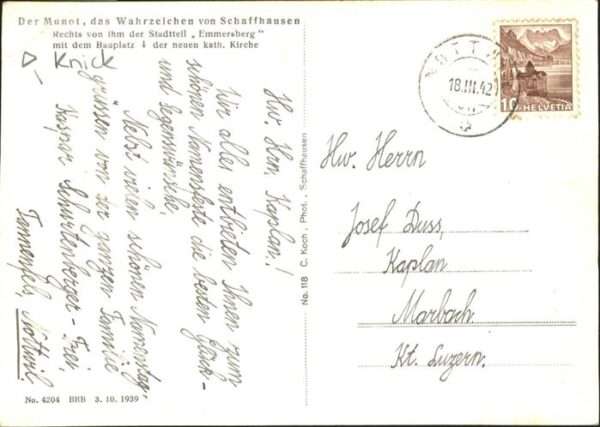 Der Munot, das Wahrzeichen von Schaffhausen
Rechts von ihm der Stadtteil „Emmersberg"
mit dem Bauplatz ↓ der neuen kath. Kirche
Knick
Hw. Hrn. Kaplan!
Wir alle entbieten Ihnen zum
schönen Namensfeste die besten Glück-
und Segenswünsche.
Nebst vielen schönen Namenstag-
grüssen von der ganzen Familie
Kaspar Schurtenberger-Frei,
Tannenfels, Nottwil.
No. 4204 BRB 3. 10. 1939
No. 118 C. Koch, Phot., Schaffhausen
18.III.42
10 HELVETIA
Hw. Herrn
Josef Duss,
Kaplan
Marbach
Kt. Luzern.